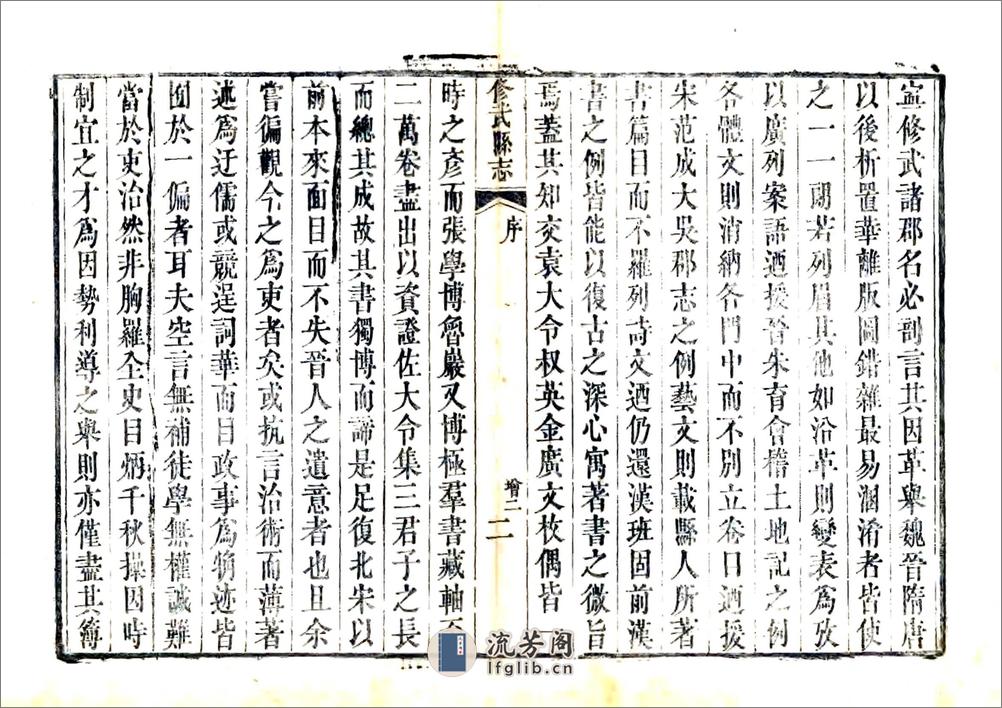 寍修武諸郡名必剖言其因革與魏晉隋唐
以後析置華離版圖錯雜最易溷淆者皆使
之一一朗若列眉其他如沿革則變表爲攷
以廣列案語迺援晉朱育會稽土地記之例
各體文則消納各門中而不別立卷目迺援
宋范成大吳郡志之例藝文則載縣人所著
書篇目而不羅列詩文迺仍還漢班固前漢
書之例皆能以復古之深心寓著書之微旨
焉蓋其知交袁大令叔英金廣文枚偶皆
修武縣志
序
增二
二
時之彥而張學博魯巖又博極羣書藏軸至
二萬卷盡出以資證佐大令集三君子之長
而總其成故其書獨博而諦是足復北宋以
前本來面目而不失晉人之遺意者也且余
嘗徧觀今之爲吏者矣或抗言治術而薄著
述爲迂儒或競逞詞華而目政事爲粃迹皆
囿於一偏者耳夫空言無補徒學無權誠難
當於吏治然非胸羅全史目炳千秋操因時
制宜之才爲因勢利導之舉則亦僅盡其簿
流芳阁
lfglib.cn